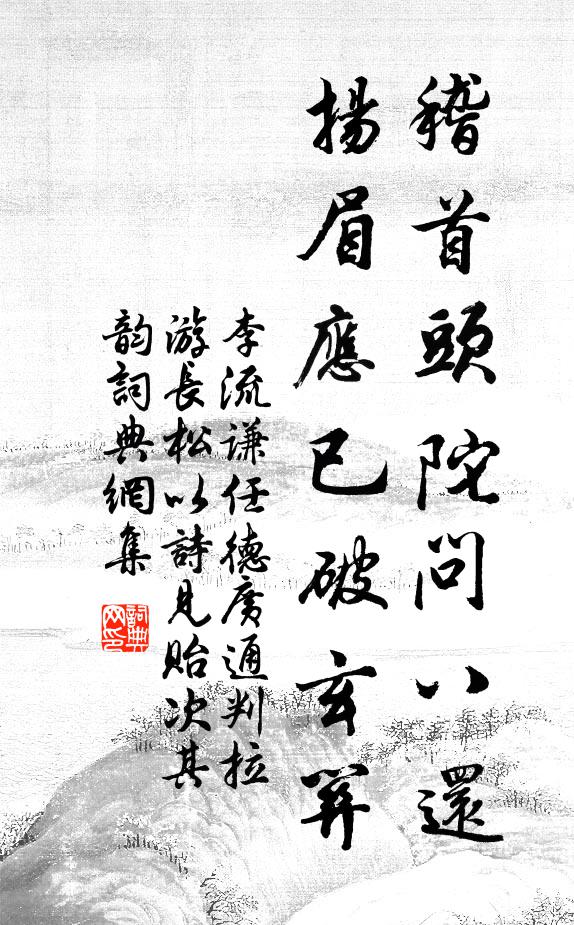 稽首頭陀問八還
揚眉應已破玄關
李流謙任德廣通判拉
游長松以詩見貽次其
韵詞典網集
詞典
网印